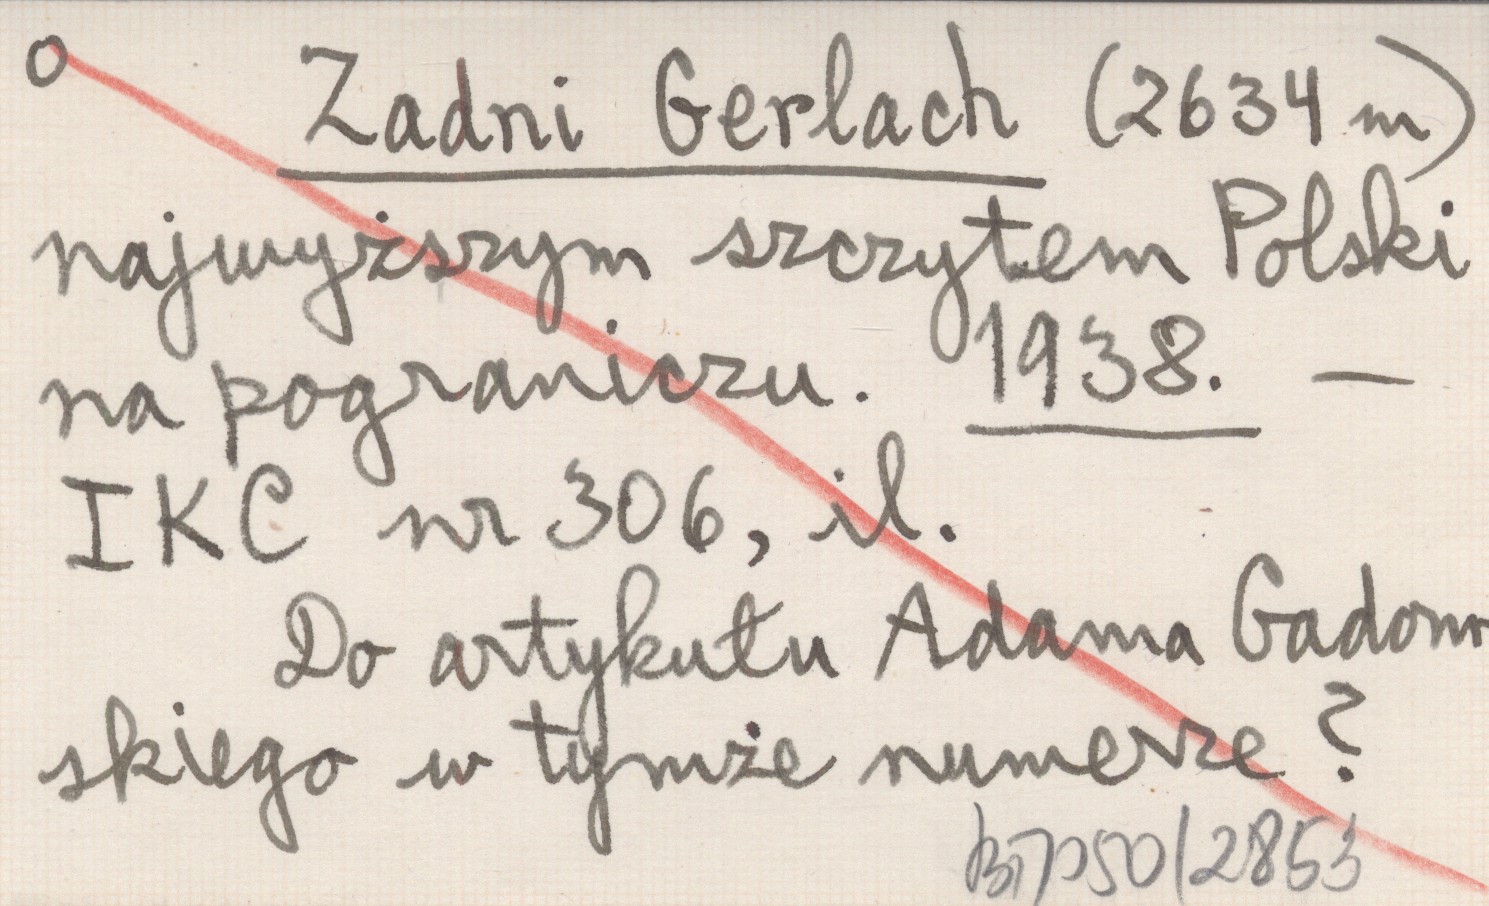 o Zadni Gerlach (2634 m)
najwyższym szczytem Polski
na pograniczu. 1938. —
IKC nr 306, il.
Do artykułu Adama Gadom
skiego w tymże numerze?
50/2853